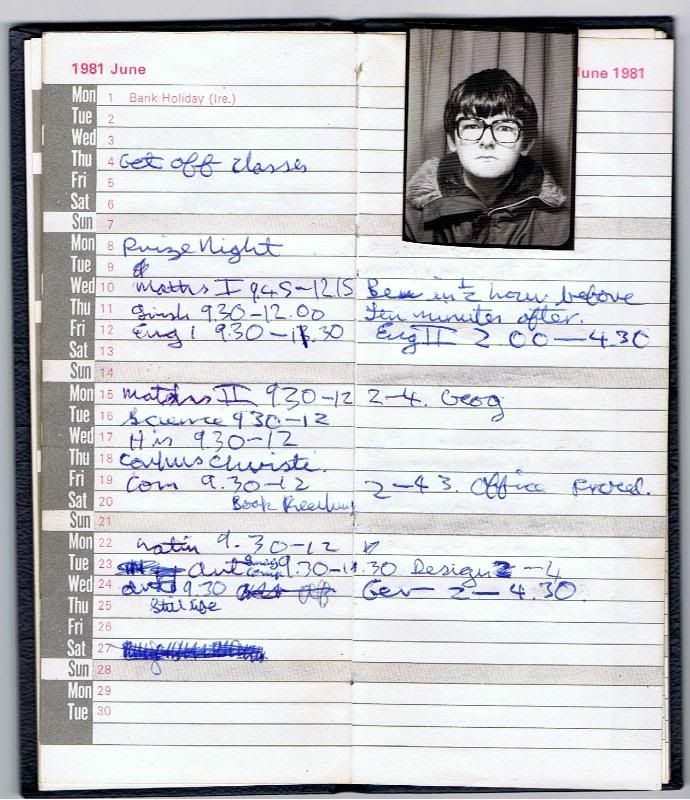 1981 June
June 1981
Mon 1 Bank Holiday (Ire.)
Tue 2
Wed 3
Thu 4 Get off classes
Fri 5
Sat 6
Sun 7
Mon 8 Prize Night
Tue 9
Wed 10 Maths I 9.45-12.15 Be in ½ hour before
Thu 11 Irish 9.30-12.00 Ten minutes after.
Fri 12 Eng 1 9.30-12.30 Eng II 2.00-4.30
Sat 13
Sun 14
Mon 15 Maths II 9.30-12 2-4. Geog
Tue 16 Science 9.30-12
Wed 17 His 9.30-12
Thu 18 Corpus Christi.
Fri 19 Com 9.30-12 2-4 3. Office Proced.
Sat 20 Book
Sun 21
Mon 22 Latin 9.30-12
Tue 23 Art 9.30-11.30 Design 2-4
Wed 24 Art 9.30 Ger 2-4.30
Thu 25 Still life
Fri 26
Sat 27
Sun 28
Mon 29
Tue 30